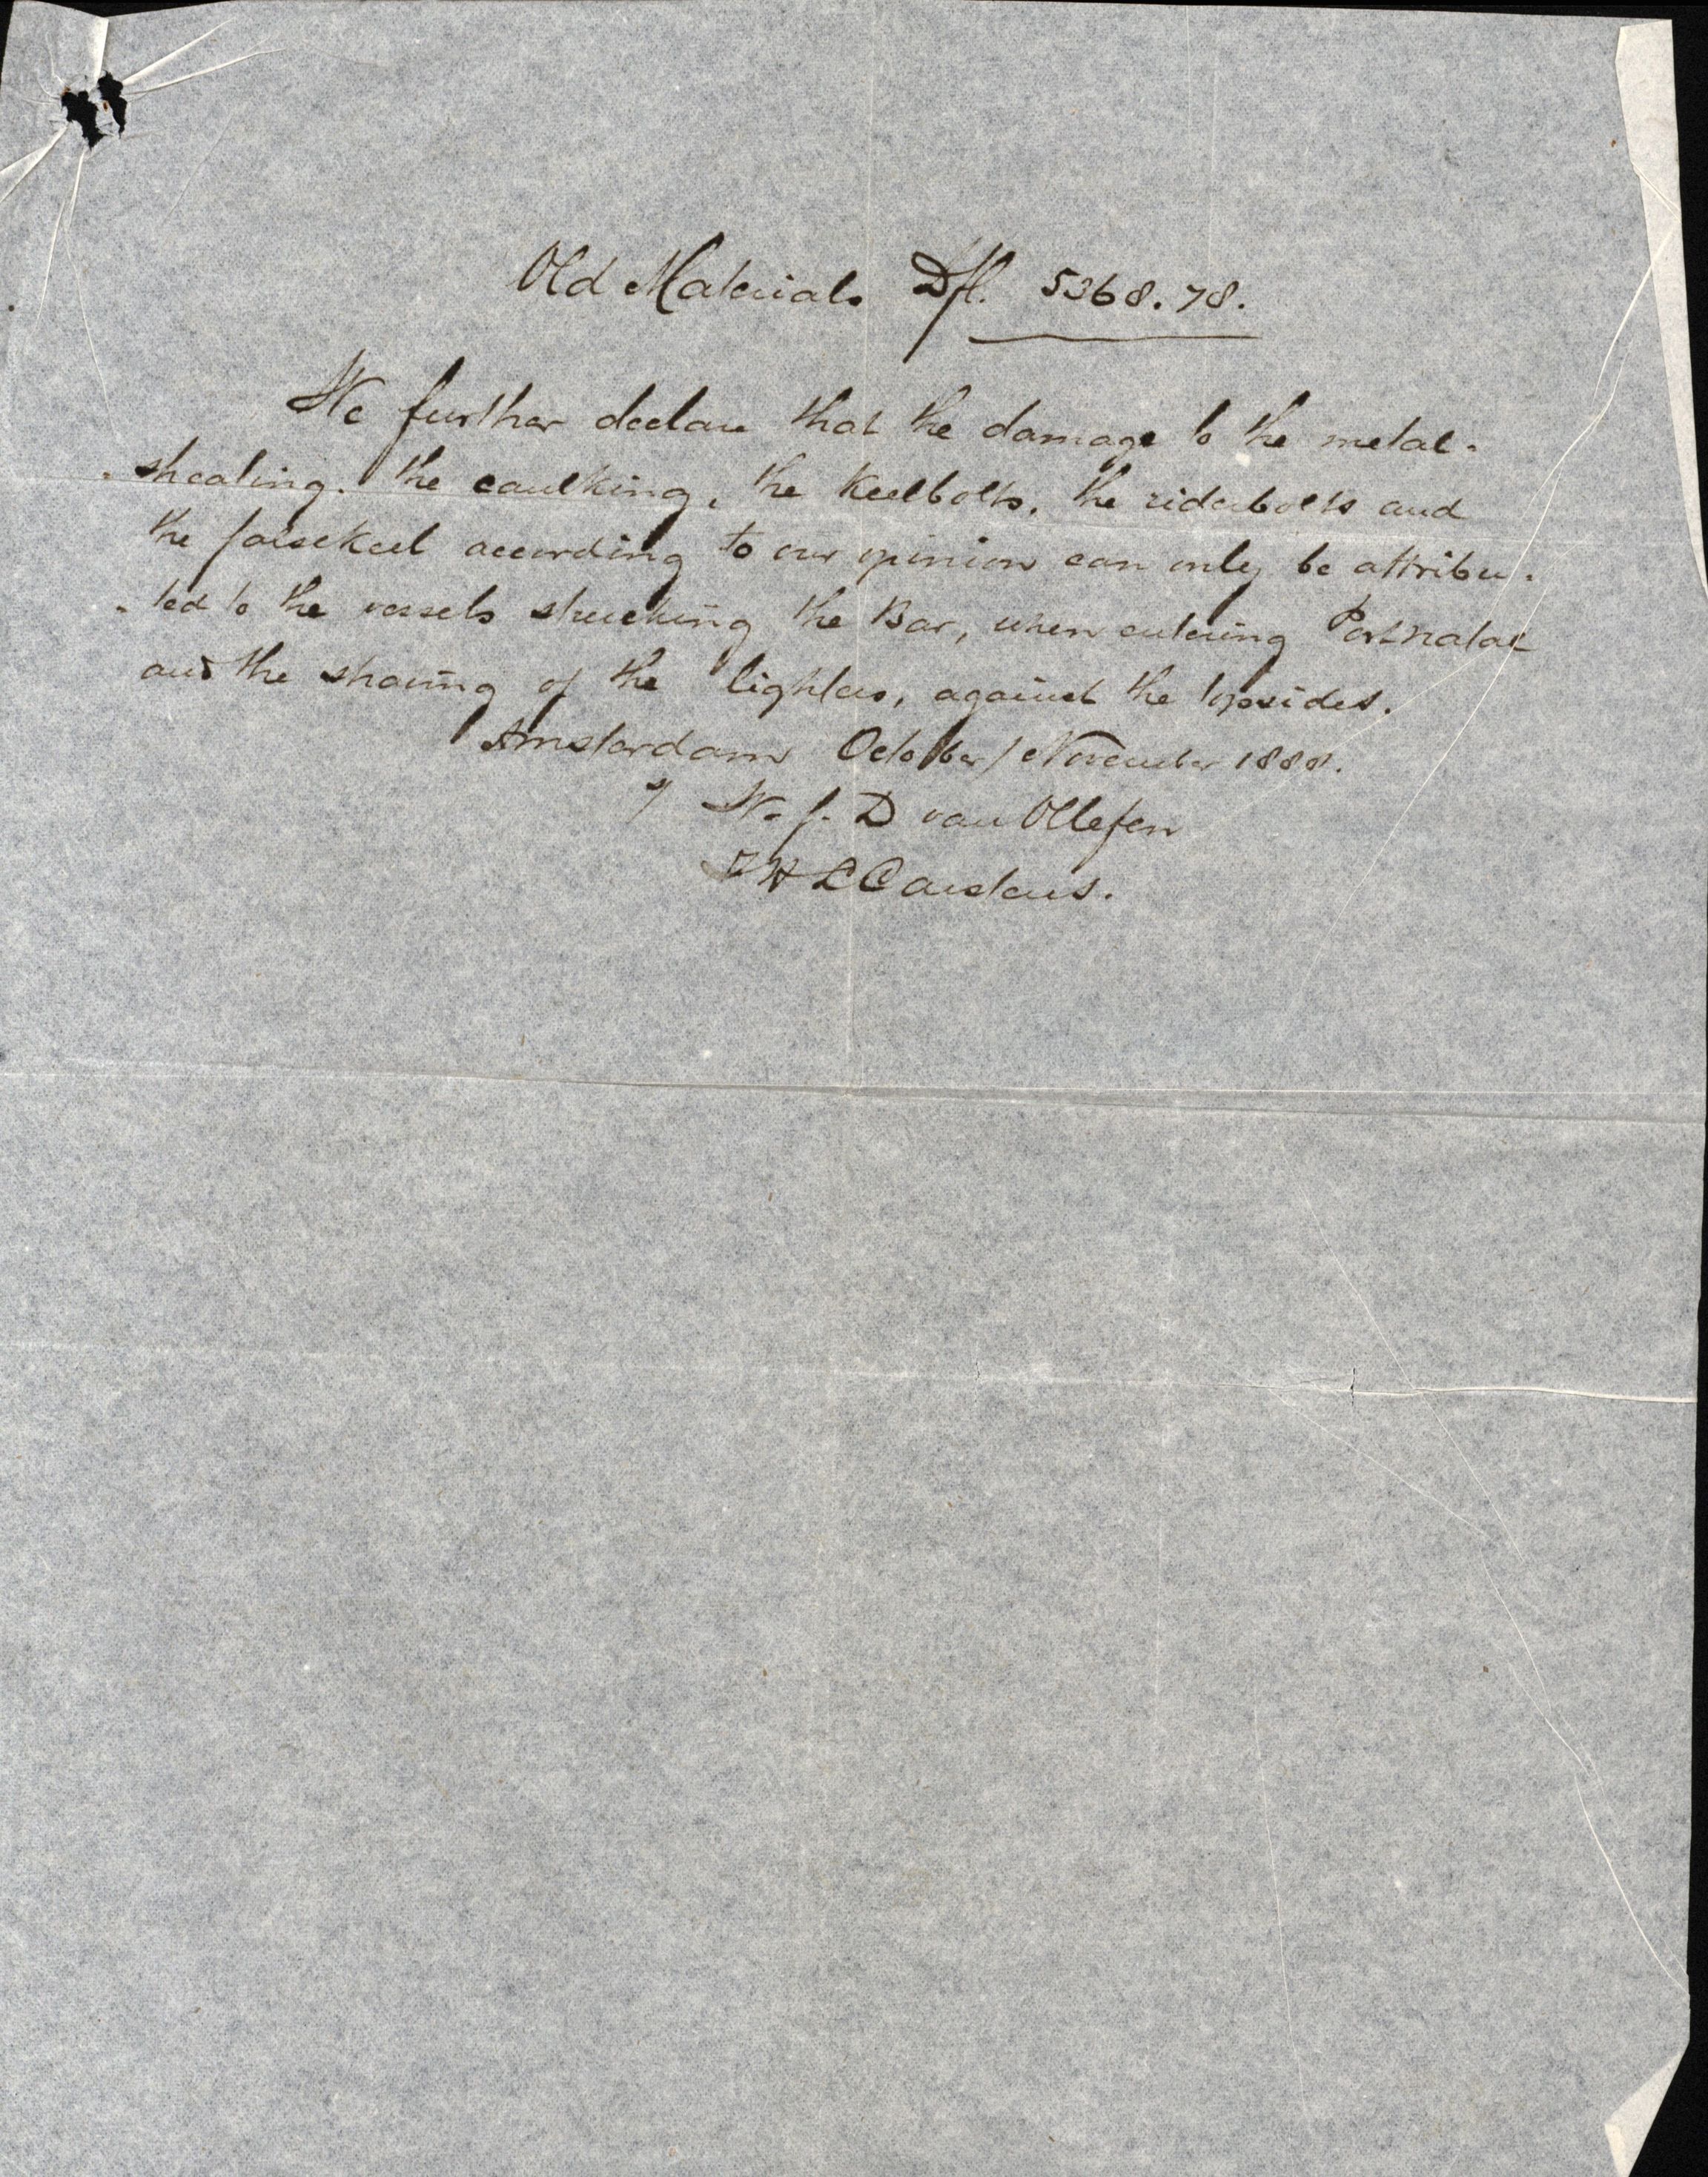 Old Materials Dfl. 5368.78.
We further declare that the damage to the metal-
-sheating. the caulking, the Keelbolts, the riderbolts and
the falsekeel according to our opinion can only be attribu-
-ted to the vessels strucking the Bar, when entering Portnatal
and the shaving of the lighters, against the topsides.
Amsterdam October/November 1888.
s/ W. J. D van Ollefen
H L Carstens.